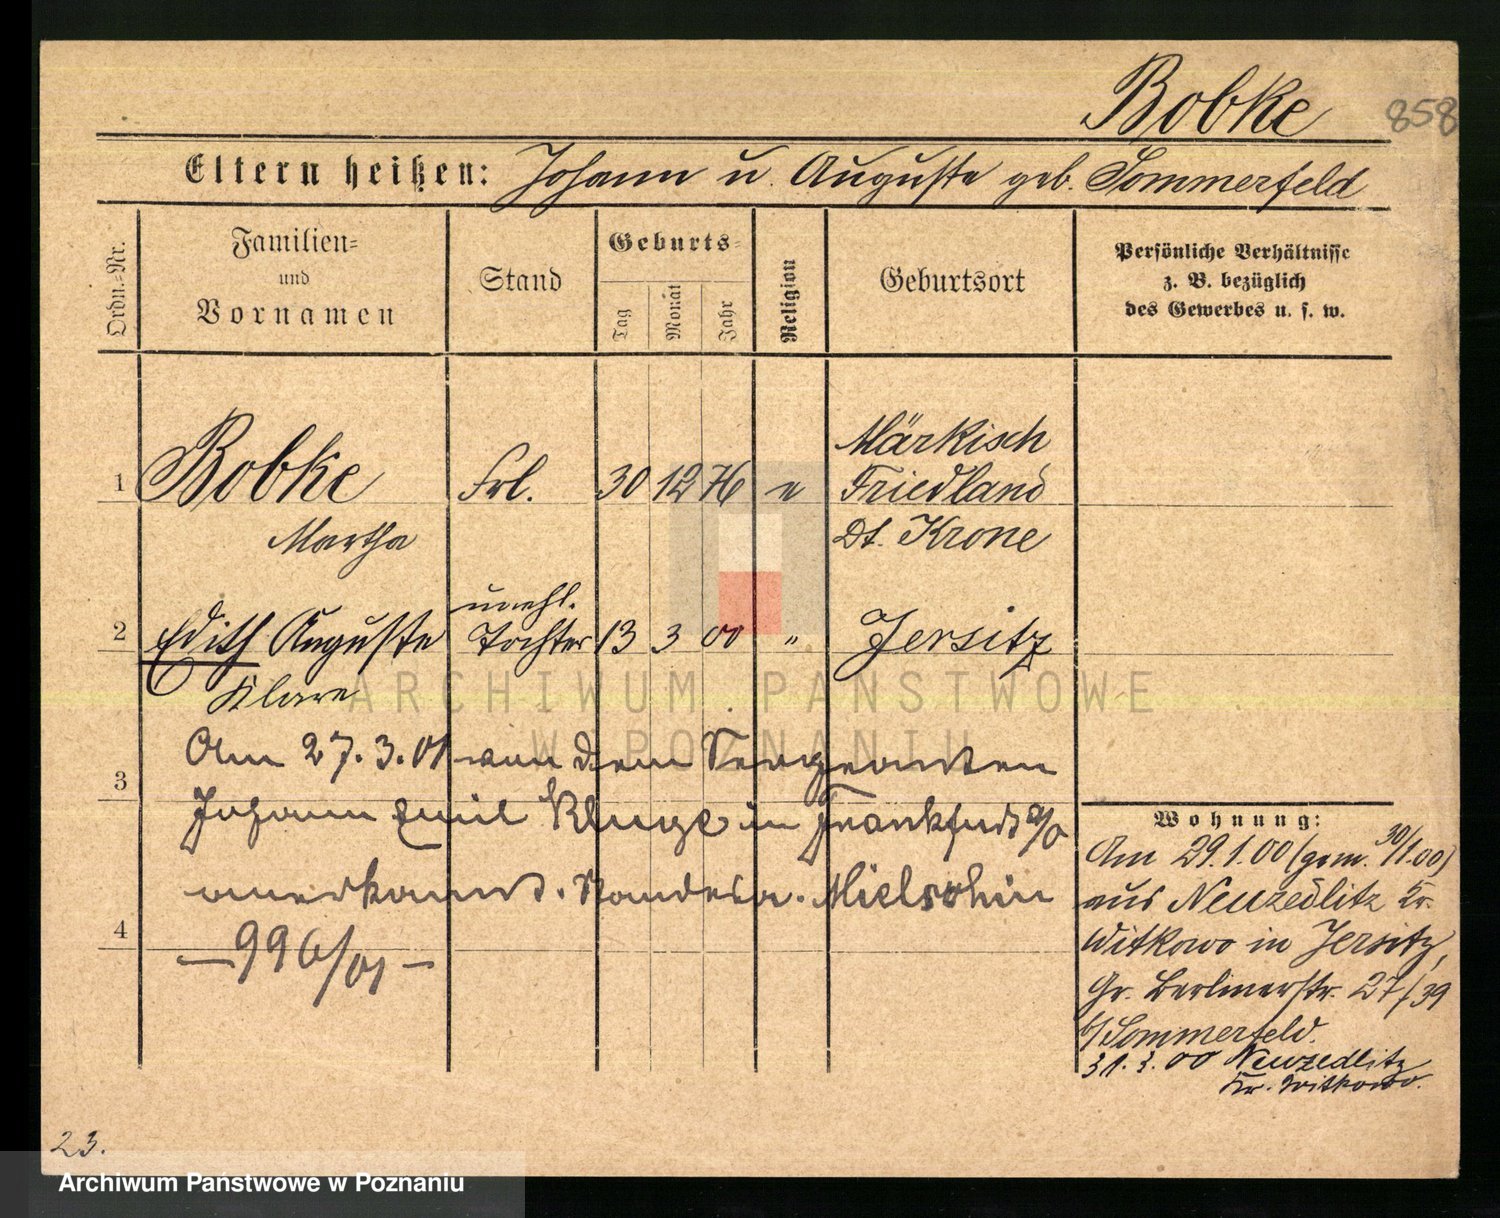 Bobke 858
Eltern heißen: Johann u. Auguste geb. Sommerfeld
Ordn.-Nr.
Familien-
und
Vornamen
Stand
Geburts-
Tag
Monat
Jahr
Religion
Geburtsort
Persönliche Verhältnisse
z. B. bezüglich
des Gewerbes u. s. w.
1 Bobke Frl. 30 12 76 e Märkisch
Friedland
Martha Dt. Krone
unehl.
2 Edith Auguste Tochter 13 3 00 " Jersitz
Klare
ARCHIWUM PAŃSTWOWE
W POZNANIU
Am 27.3.01 von dem Sergeanten
3
Johann Emil Kluge in Frankfurt a/O
anerkannt. Standesa.
4
— 996/01 —
Wohnung:
Am 29.1.00 (gem. 30/1.00)
aus Neuzedlitz Kr.
Witkowo in Jersitz,
Gr. Berlinerstr. 27/39
b/Sommerfeld.
31.3.00 Neuzedlitz
Kr. Witkowo.
23.
Archiwum Państwowe w Poznaniu